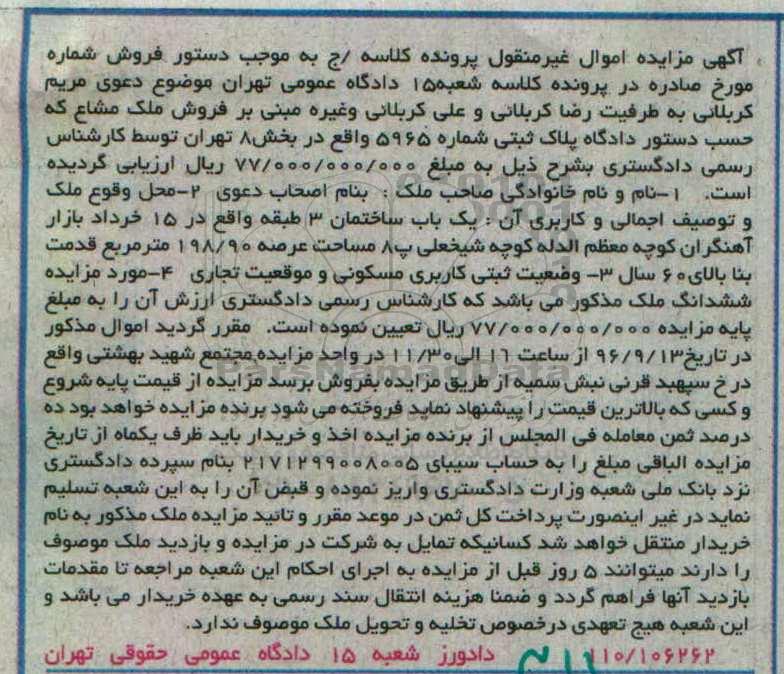 آگهی مزایده اموال غیرمنقول پرونده کلاسه /ج به موجب دستور فروش شماره
مورخ صادره در پرونده کلاسه شعبه۱۵ دادگاه عمومی تهران موضوع دعوی مریم
کربلائی به طرفیت رضا کربلائی و علی کربلائی وغیره مبنی بر فروش ملک مشاع که
حسب دستور دادگاه پلاک ثبتی شماره ۵۹۶۵ واقع در بخش۸ تهران توسط کارشناس
رسمی دادگستری بشرح ذیل به مبلغ ۷۷/۰۰۰/۰۰۰/۰۰۰ ریال ارزیابی گردیده
است. ۱-نام و نام خانوادگی صاحب ملک : بنام اصحاب دعوی ۲-محل وقوع ملک
و توصیف اجمالی و کاربری آن : یک باب ساختمان ۳ طبقه واقع در ۱۵ خرداد بازار
آهنگران کوچه معظم الدله کوچه شیخعلی پ۸ مساحت عرصه ۱۹۸/۹۰ مترمربع قدمت
بنا بالای۶۰ سال ۳- وضعیت ثبتی کاربری مسکونی و موقعیت تجاری ۴-مورد مزایده
ششدانگ ملک مذکور می باشد که کارشناس رسمی دادگستری ارزش آن را به مبلغ
پایه مزایده ۷۷/۰۰۰/۰۰۰/۰۰۰ ریال تعیین نموده است. مقرر گردید اموال مذکور
در تاریخ۹۶/۹/۱۳ از ساعت ۱۱ الی۱۱/۳۰ در واحد مزایده مجتمع شهید بهشتی واقع
در خ سپهبد قرنی نبش سمیه از طریق مزایده بفروش برسد مزایده از قیمت پایه شروع
و کسی که بالاترین قیمت را پیشنهاد نماید فروخته می شود پرنده مزایده خواهد بود ده
درصد ثمن معامله فی المجلس از برنده مزایده اخذ و خریدار باید ظرف یکماه از تاریخ
مزایده الباقی مبلغ را به حساب سیبای ۲۱۷۱۲۹۹۰۰۸۰۰۵ بنام سپرده دادگستری
نزد بانک ملی شعبه وزارت دادگستری واریز نموده و قبض آن را به این شعبه تسلیم
نماید در غیر اینصورت پرداخت کل ثمن در موعد مقرر و تائید مزایده ملک مذکور به نام
خریدار منتقل خواهد شد کسانیکه تمایل به شرکت در مزایده و بازدید ملک موصوف
را دارند میتوانند ۵ روز قبل از مزایده به اجرای احکام این شعبه مراجعه تا مقدمات
بازدید آنها فراهم گردد و ضمنا هزینه انتقال سند رسمی به عهده خریدار می باشد و
این شعبه هیچ تعهدی درخصوص تخلیه و تحویل ملک موصوف ندارد.
۱۱۰/۱۰۶۲۶۲ دادورز شعبه ۱۵ دادگاه عمومی حقوقی تهران
ParsNamadData